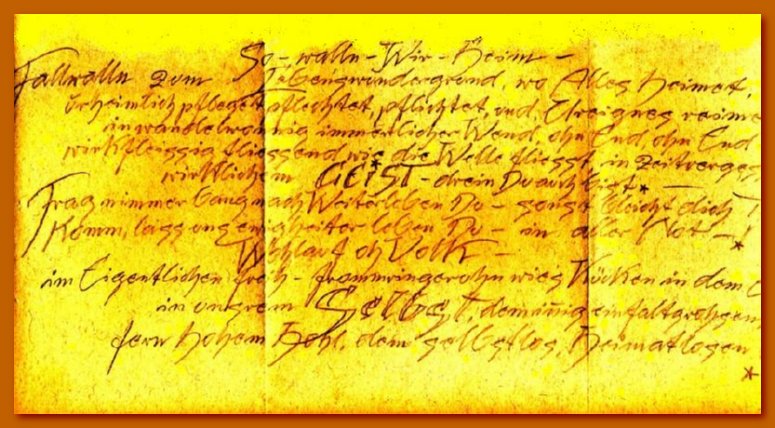 So - walln - Wir - Heim -
Fallwalln zum Lebenswundergrund, wo Alles heimet,
urheimlich pfleget, flechtet, pflichtet, und Ureignes reime
immerlicher Wend, ohn End, ohn End
wirkfleissig fliessend wie die Welle fliesst, in
wirklichem GEIST - drein Du auch bist * -
Frag nimmer bang nach Weiterleben Du - sonst bleicht dich
Komm, lass uns ewigheiter leben Du - in aller Not -
Wohlauf oh Volk -
im Eigentlichen froh - wies Kücken in dem
in unsrem Selbst, dem innig einfaltgrohsen
fern hohem Hohl, dem selbstlos, heimatlosen
*